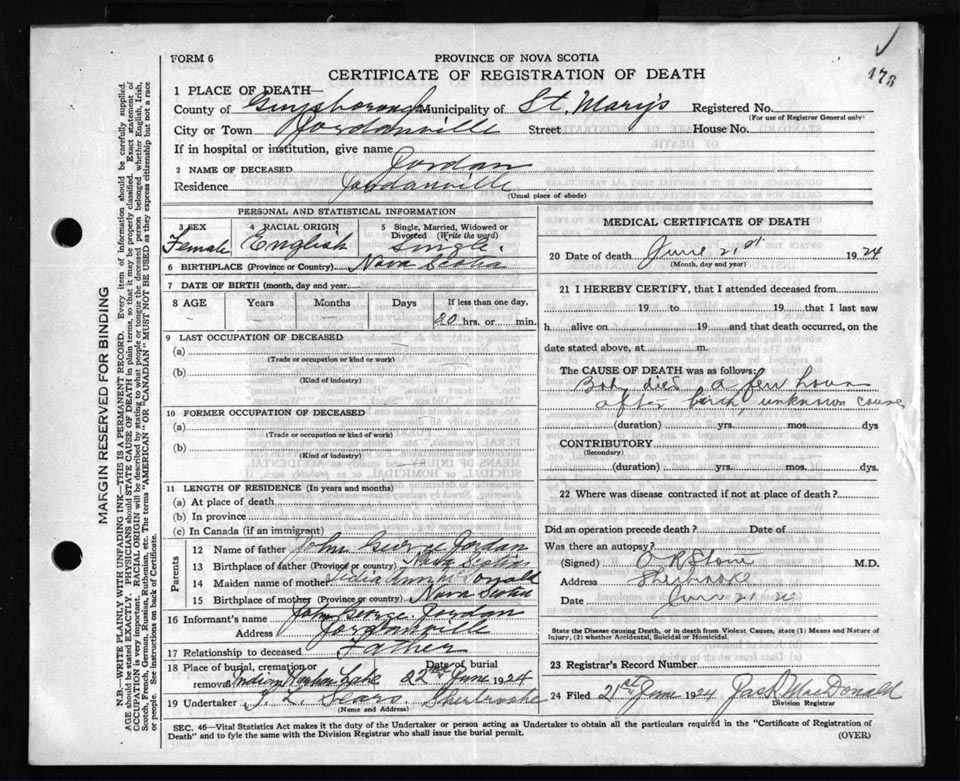 FORM 6
PROVINCE OF NOVA SCOTIA
CERTIFICATE OF REGISTRATION OF DEATH
173
1 PLACE OF DEATH—
County of Guysborough Municipality of St. Mary's Registered No.
(For use of Registrar General only)
City or Town Jordanville Street House No.
If in hospital or institution, give name
2 NAME OF DECEASED Jordan
Residence Jordanville
(Usual place of abode)
PERSONAL AND STATISTICAL INFORMATION
3 SEX Female
4 RACIAL ORIGIN English
5 Single, Married, Widowed or Divorced (Write the word) Single.
6 BIRTHPLACE (Province or Country) Nova Scotia
7 DATE OF BIRTH (month, day and year)
8 AGE Years Months Days If less than one day, 20 hrs. or min.
9 LAST OCCUPATION OF DECEASED
(a)
(Trade or occupation or kind or work)
(b)
(Kind of industry)
10 FORMER OCCUPATION OF DECEASED
(a)
(Trade or occupation or kind of work)
(b)
(Kind of industry)
11 LENGTH OF RESIDENCE (In years and months)
(a) At place of death
(b) In province
(c) In Canada (if an immigrant)
Parents
12 Name of father John George Jordan
13 Birthplace of father (Province or country) Nova Scotia
14 Maiden name of mother Lidia Ann
15 Birthplace of mother (Province or country) Nova Scotia
16 Informant's name John George Jordan
Address Jordanville
17 Relationship to deceased Father
18 Place of burial, cremation or removal Indian Harbor Lake Date of burial 22nd June 1924
19 Undertaker Sears Sherbrooke
(Name and Address)
MEDICAL CERTIFICATE OF DEATH
20 Date of death June 21st 1924
(Month, day and year)
21 I HEREBY CERTIFY, that I attended deceased from
19 to 19 that I last saw
h alive on 19 and that death occurred, on the
date stated above, at m.
The CAUSE OF DEATH was as follows:
died a few hours
after birth, unknown cause
(duration) yrs. mos. dys
CONTRIBUTORY
(Secondary)
(duration) yrs. mos. dys.
22 Where was disease contracted if not at place of death?
Did an operation precede death? Date of
Was there an autopsy?
(Signed) M.D.
Address Sherbrooke
Date June 21 24
State the Disease causing Death, or in death from Violent Causes, state (1) Means and Nature of
Injury, (2) whether Accidental, Suicidal or Homicidal.
23 Registrar's Record Number
24 Filed 21st June 1924 MacDonald
Division Registrar
SEC. 46—Vital Statistics Act makes it the duty of the Undertaker or person acting as Undertaker to obtain all the particulars required in the "Certificate of Registration of
Death" and to fyle the same with the Division Registrar who shall issue the burial permit.
(OVER)
MARGIN RESERVED FOR BINDING
N.B.—WRITE PLAINLY WITH UNFADING INK—THIS IS A PERMANENT RECORD. Every item of information should be carefully supplied.
AGE should be stated EXACTLY. PHYSICIANS should STATE CAUSE OF DEATH in plain terms, so that it may be properly classified. Exact statement of
OCCUPATION is very important. RACIAL ORIGIN will be described by stating to what people or tongue the deceased person belonged whether English, Irish,
Scotch, French, German, Russian, Ruthenian, etc. The terms "AMERICAN" OR "CANADIAN" MUST NOT BE USED as they express citizenship but not a race
or people. See instructions on back of Certificate.